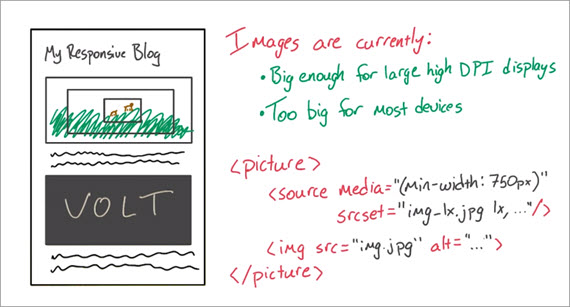 My Responsive Blog
VOLT
Images are currently:
• Big enough for large high DPI displays
• Too big for most devices
<picture>
<source media="(min-width: 750px)"
srcset="img-1x.jpg 1x, ..."/>
<img src="img.jpg" alt="...">
</picture>